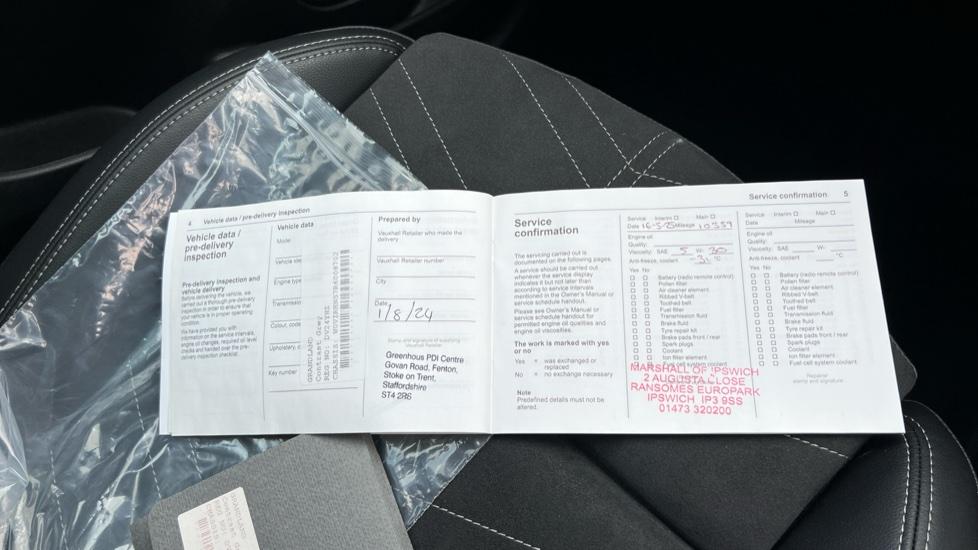 4 Vehicle data / pre-delivery inspection
Vehicle data /
pre-delivery
inspection
Pre-delivery inspection and
vehicle delivery
Before delivering the vehicle, we
carried out a thorough pre-delivery
inspection in order to ensure that
your vehicle is in proper operating
condition.
We have provided you with
information on the service intervals,
engine oil changes, required oil level
checks and handed over the pre-
delivery inspection checklist.
Vehicle data
Model
Engine type
Transmission
Colour, code
Upholstery,
Key number
GRANDLAND
Contrast Grey
REG NO:
CHASSIS
Prepared by
Vauxhall Retailer who made the
delivery
Vauxhall Retailer number
City
Date
1/8/24
Name and signature of supplying
Vauxhall Retailer
Greenhous PDI Centre
Govan Road, Fenton,
Stoke on Trent,
Staffordshire
ST4 2RS
Service confirmation 5
Service
confirmation
The servicing carried out is
documented on the following pages.
A service should be carried out
whenever the service display
indicates it but not later than
according to service intervals
mentioned in the Owner's Manual or
service schedule handout.
Please see Owner's Manual or
service schedule handout for
permitted engine oil qualities and
engine oil viscosities.
The work is marked with yes
or no
Yes = was exchanged or
replaced
No = no exchange necessary
Note
Predefined details must not be
altered.
Service Interim Main
Date 16-5-25 Mileage 10559
Engine oil
Quality:
Viscosity: SAE 5 W- 30
Anti-freeze, coolant -31 °C
Yes No
Battery (radio remote control)
Pollen filter
Air cleaner element
Ribbed V-belt
Toothed belt
Fuel filter
Transmission fluid
Brake fluid
Tyre repair kit
Brake pads front / rear
Spark plugs
Coolant
Ion filter element
Fuel-cell system coolant
MARSHALL OF IPSWICH
2 AUGUSTA CLOSE
RANSOMES EUROPARK
IPSWICH IP3 9SS
01473 320200
Service Interim Main
Date Mileage
Engine oil
Quality:
Viscosity: SAE W-
Anti-freeze, coolant °C
Yes No
Battery (radio remote control)
Pollen filter
Air cleaner element
Ribbed V-belt
Toothed belt
Fuel filter
Transmission fluid
Brake fluid
Tyre repair kit
Brake pads front / rear
Spark plugs
Coolant
Ion filter element
Fuel-cell system coolant
Repairer
stamp and signature
GRANDLAND